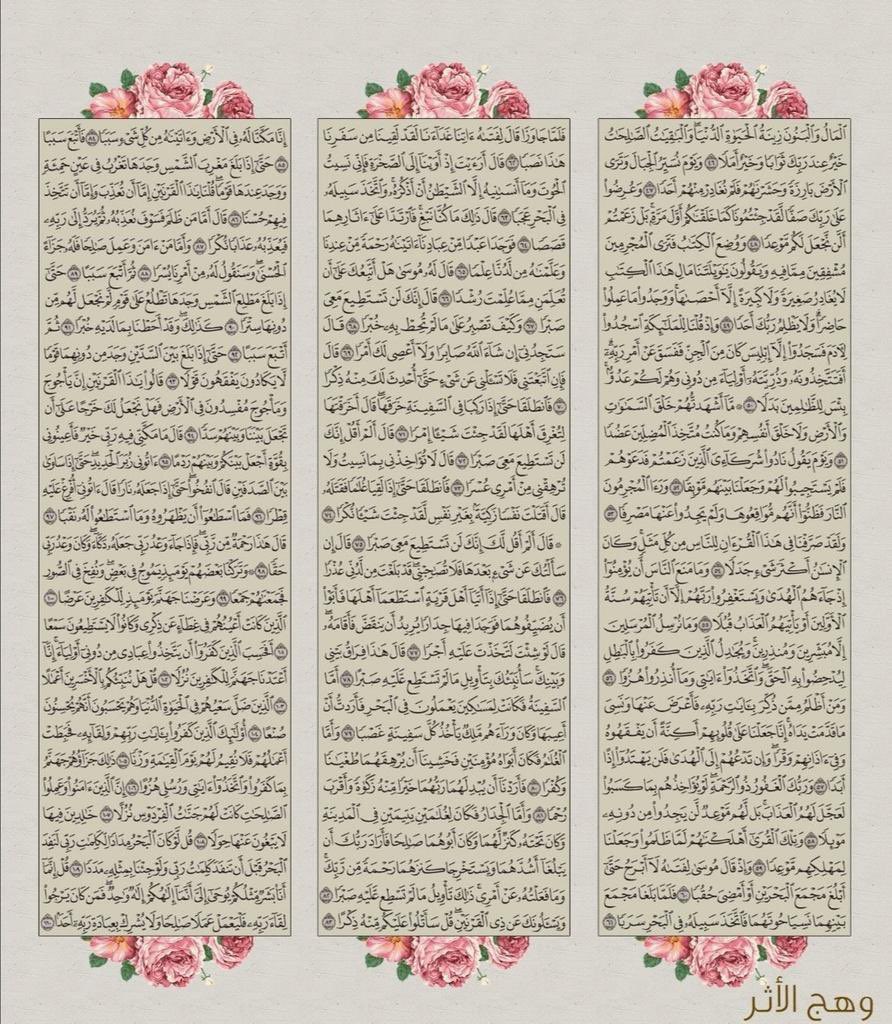 ٱلۡمَالُ وَٱلۡبَنُونَ زِينَةُ ٱلۡحَيَوٰةِ ٱلدُّنۡيَاۖ وَٱلۡبَٰقِيَٰتُ ٱلصَّٰلِحَٰتُ
خَيۡرٌ عِندَ رَبِّكَ ثَوَابٗا وَخَيۡرٌ أَمَلٗا ٤٦ وَيَوۡمَ نُسَيِّرُ ٱلۡجِبَالَ وَتَرَى
ٱلۡأَرۡضَ بَارِزَةٗ وَحَشَرۡنَٰهُمۡ فَلَمۡ نُغَادِرۡ مِنۡهُمۡ أَحَدٗا ٤٧ وَعُرِضُواْ
عَلَىٰ رَبِّكَ صَفّٗا لَّقَدۡ جِئۡتُمُونَا كَمَا خَلَقۡنَٰكُمۡ أَوَّلَ مَرَّةِۭۚ بَلۡ زَعَمۡتُمۡ
أَلَّن نَّجۡعَلَ لَكُم مَّوۡعِدٗا ٤٨ وَوُضِعَ ٱلۡكِتَٰبُ فَتَرَى ٱلۡمُجۡرِمِينَ
مُشۡفِقِينَ مِمَّا فِيهِ وَيَقُولُونَ يَٰوَيۡلَتَنَا مَالِ هَٰذَا ٱلۡكِتَٰبِ
لَا يُغَادِرُ صَغِيرَةٗ وَلَا كَبِيرَةً إِلَّآ أَحۡصَىٰهَاۚ وَوَجَدُواْ مَا عَمِلُواْ
حَاضِرٗاۗ وَلَا يَظۡلِمُ رَبُّكَ أَحَدٗا ٤٩ وَإِذۡ قُلۡنَا لِلۡمَلَٰٓئِكَةِ ٱسۡجُدُواْ
لِأٓدَمَ فَسَجَدُوٓاْ إِلَّآ إِبۡلِيسَ كَانَ مِنَ ٱلۡجِنِّ فَفَسَقَ عَنۡ أَمۡرِ رَبِّهِۦٓۗ
أَفَتَتَّخِذُونَهُۥ وَذُرِّيَّتَهُۥٓ أَوۡلِيَآءَ مِن دُونِي وَهُمۡ لَكُمۡ عَدُوُّۢۚ
بِئۡسَ لِلظَّٰلِمِينَ بَدَلٗا ٥٠ ۞ مَّآ أَشۡهَدتُّهُمۡ خَلۡقَ ٱلسَّمَٰوَٰتِ
وَٱلۡأَرۡضِ وَلَا خَلۡقَ أَنفُسِهِمۡ وَمَا كُنتُ مُتَّخِذَ ٱلۡمُضِلِّينَ عَضُدٗا
٥١ وَيَوۡمَ يَقُولُ نَادُواْ شُرَكَآءِيَ ٱلَّذِينَ زَعَمۡتُمۡ فَدَعَوۡهُمۡ
فَلَمۡ يَسۡتَجِيبُواْ لَهُمۡ وَجَعَلۡنَا بَيۡنَهُم مَّوۡبِقٗا ٥٢ وَرَءَا ٱلۡمُجۡرِمُونَ
ٱلنَّارَ فَظَنُّوٓاْ أَنَّهُم مُّوَاقِعُوهَا وَلَمۡ يَجِدُواْ عَنۡهَا مَصۡرِفٗا ٥٣
وَلَقَدۡ صَرَّفۡنَا فِي هَٰذَا ٱلۡقُرۡءَانِ لِلنَّاسِ مِن كُلِّ مَثَلٖۚ وَكَانَ
ٱلۡإِنسَٰنُ أَكۡثَرَ شَيۡءٖ جَدَلٗا ٥٤ وَمَا مَنَعَ ٱلنَّاسَ أَن يُؤۡمِنُوٓاْ
إِذۡ جَآءَهُمُ ٱلۡهُدَىٰ وَيَسۡتَغۡفِرُواْ رَبَّهُمۡ إِلَّآ أَن تَأۡتِيَهُمۡ سُنَّةُ
ٱلۡأَوَّلِينَ أَوۡ يَأۡتِيَهُمُ ٱلۡعَذَابُ قُبُلٗا ٥٥ وَمَا نُرۡسِلُ ٱلۡمُرۡسَلِينَ
إِلَّا مُبَشِّرِينَ وَمُنذِرِينَۚ وَيُجَٰدِلُ ٱلَّذِينَ كَفَرُواْ بِٱلۡبَٰطِلِ
لِيُدۡحِضُواْ بِهِ ٱلۡحَقَّۖ وَٱتَّخَذُوٓاْ ءَايَٰتِي وَمَآ أُنذِرُواْ هُزُوٗا ٥٦
وَمَنۡ أَظۡلَمُ مِمَّن ذُكِّرَ بِـَٔايَٰتِ رَبِّهِۦ فَأَعۡرَضَ عَنۡهَا وَنَسِيَ
مَا قَدَّمَتۡ يَدَاهُۚ إِنَّا جَعَلۡنَا عَلَىٰ قُلُوبِهِمۡ أَكِنَّةً أَن يَفۡقَهُوهُ
وَفِيٓ ءَاذَانِهِمۡ وَقۡرٗاۖ وَإِن تَدۡعُهُمۡ إِلَى ٱلۡهُدَىٰ فَلَن يَهۡتَدُوٓاْ إِذًا
أَبَدٗا ٥٧ وَرَبُّكَ ٱلۡغَفُورُ ذُو ٱلرَّحۡمَةِۖ لَوۡ يُؤَاخِذُهُم بِمَا كَسَبُواْ
لَعَجَّلَ لَهُمُ ٱلۡعَذَابَۚ بَل لَّهُم مَّوۡعِدٞ لَّن يَجِدُواْ مِن دُونِهِۦ
مَوۡئِلٗا ٥٨ وَتِلۡكَ ٱلۡقُرَىٰٓ أَهۡلَكۡنَٰهُمۡ لَمَّا ظَلَمُواْ وَجَعَلۡنَا
لِمَهۡلِكِهِم مَّوۡعِدٗا ٥٩ وَإِذۡ قَالَ مُوسَىٰ لِفَتَىٰهُ لَآ أَبۡرَحُ حَتَّىٰٓ
أَبۡلُغَ مَجۡمَعَ ٱلۡبَحۡرَيۡنِ أَوۡ أَمۡضِيَ حُقُبٗا ٦٠ فَلَمَّا بَلَغَا مَجۡمَعَ
بَيۡنِهِمَا نَسِيَا حُوتَهُمَا فَٱتَّخَذَ سَبِيلَهُۥ فِي ٱلۡبَحۡرِ سَرَبٗا ٦١
فَلَمَّا جَاوَزَا قَالَ لِفَتَىٰهُ ءَاتِنَا غَدَآءَنَا لَقَدۡ لَقِينَا مِن سَفَرِنَا
هَٰذَا نَصَبٗا ٦٢ قَالَ أَرَءَيۡتَ إِذۡ أَوَيۡنَآ إِلَى ٱلصَّخۡرَةِ فَإِنِّي نَسِيتُ
ٱلۡحُوتَ وَمَآ أَنسَىٰنِيهُ إِلَّا ٱلشَّيۡطَٰنُ أَنۡ أَذۡكُرَهُۥۚ وَٱتَّخَذَ سَبِيلَهُۥ
فِي ٱلۡبَحۡرِ عَجَبٗا ٦٣ قَالَ ذَٰلِكَ مَا كُنَّا نَبۡغِۚ فَٱرۡتَدَّا عَلَىٰٓ ءَاثَارِهِمَا
قَصَصٗا ٦٤ فَوَجَدَا عَبۡدٗا مِّنۡ عِبَادِنَآ ءَاتَيۡنَٰهُ رَحۡمَةٗ مِّنۡ عِندِنَا
وَعَلَّمۡنَٰهُ مِن لَّدُنَّا عِلۡمٗا ٦٥ قَالَ لَهُۥ مُوسَىٰ هَلۡ أَتَّبِعُكَ عَلَىٰٓ أَن
تُعَلِّمَنِ مِمَّا عُلِّمۡتَ رُشۡدٗا ٦٦ قَالَ إِنَّكَ لَن تَسۡتَطِيعَ مَعِيَ
صَبۡرٗا ٦٧ وَكَيۡفَ تَصۡبِرُ عَلَىٰ مَا لَمۡ تُحِطۡ بِهِۦ خُبۡرٗا ٦٨ قَالَ
سَتَجِدُنِيٓ إِن شَآءَ ٱللَّهُ صَابِرٗا وَلَآ أَعۡصِي لَكَ أَمۡرٗا ٦٩ قَالَ
فَإِنِ ٱتَّبَعۡتَنِي فَلَا تَسۡـَٔلۡنِي عَن شَيۡءٍ حَتَّىٰٓ أُحۡدِثَ لَكَ مِنۡهُ ذِكۡرٗا
٧٠ فَٱنطَلَقَا حَتَّىٰٓ إِذَا رَكِبَا فِي ٱلسَّفِينَةِ خَرَقَهَاۖ قَالَ أَخَرَقۡتَهَا
لِتُغۡرِقَ أَهۡلَهَا لَقَدۡ جِئۡتَ شَيۡـًٔا إِمۡرٗا ٧١ قَالَ أَلَمۡ أَقُلۡ إِنَّكَ
لَن تَسۡتَطِيعَ مَعِيَ صَبۡرٗا ٧٢ قَالَ لَا تُؤَاخِذۡنِي بِمَا نَسِيتُ وَلَا
تُرۡهِقۡنِي مِنۡ أَمۡرِي عُسۡرٗا ٧٣ فَٱنطَلَقَا حَتَّىٰٓ إِذَا لَقِيَا غُلَٰمٗا فَقَتَلَهُۥ
قَالَ أَقَتَلۡتَ نَفۡسٗا زَكِيَّةَۢ بِغَيۡرِ نَفۡسٖ لَّقَدۡ جِئۡتَ شَيۡـٔٗا نُّكۡرٗا ٧٤
۞ قَالَ أَلَمۡ أَقُل لَّكَ إِنَّكَ لَن تَسۡتَطِيعَ مَعِيَ صَبۡرٗا ٧٥ قَالَ إِن
سَأَلۡتُكَ عَن شَيۡءِۭ بَعۡدَهَا فَلَا تُصَٰحِبۡنِيۖ قَدۡ بَلَغۡتَ مِن لَّدُنِّي عُذۡرٗا
٧٦ فَٱنطَلَقَا حَتَّىٰٓ إِذَآ أَتَيَآ أَهۡلَ قَرۡيَةٍ ٱسۡتَطۡعَمَآ أَهۡلَهَا فَأَبَوۡاْ
أَن يُضَيِّفُوهُمَا فَوَجَدَا فِيهَا جِدَارٗا يُرِيدُ أَن يَنقَضَّ فَأَقَامَهُۥۖ
قَالَ لَوۡ شِئۡتَ لَتَّخَذۡتَ عَلَيۡهِ أَجۡرٗا ٧٧ قَالَ هَٰذَا فِرَاقُ بَيۡنِي
وَبَيۡنِكَۚ سَأُنَبِّئُكَ بِتَأۡوِيلِ مَا لَمۡ تَسۡتَطِع عَّلَيۡهِ صَبۡرًا ٧٨ أَمَّا
ٱلسَّفِينَةُ فَكَانَتۡ لِمَسَٰكِينَ يَعۡمَلُونَ فِي ٱلۡبَحۡرِ فَأَرَدتُّ أَنۡ
أَعِيبَهَا وَكَانَ وَرَآءَهُم مَّلِكٞ يَأۡخُذُ كُلَّ سَفِينَةٍ غَصۡبٗا ٧٩ وَأَمَّا
ٱلۡغُلَٰمُ فَكَانَ أَبَوَاهُ مُؤۡمِنَيۡنِ فَخَشِينَآ أَن يُرۡهِقَهُمَا طُغۡيَٰنٗا
وَكُفۡرٗا ٨٠ فَأَرَدۡنَآ أَن يُبۡدِلَهُمَا رَبُّهُمَا خَيۡرٗا مِّنۡهُ زَكَوٰةٗ وَأَقۡرَبَ
رُحۡمٗا ٨١ وَأَمَّا ٱلۡجِدَارُ فَكَانَ لِغُلَٰمَيۡنِ يَتِيمَيۡنِ فِي ٱلۡمَدِينَةِ
وَكَانَ تَحۡتَهُۥ كَنزٞ لَّهُمَا وَكَانَ أَبُوهُمَا صَٰلِحٗا فَأَرَادَ رَبُّكَ أَن
يَبۡلُغَآ أَشُدَّهُمَا وَيَسۡتَخۡرِجَا كَنزَهُمَا رَحۡمَةٗ مِّن رَّبِّكَۚ
وَمَا فَعَلۡتُهُۥ عَنۡ أَمۡرِيۚ ذَٰلِكَ تَأۡوِيلُ مَا لَمۡ تَسۡطِع عَّلَيۡهِ صَبۡرٗا ٨٢
وَيَسۡـَٔلُونَكَ عَن ذِي ٱلۡقَرۡنَيۡنِۖ قُلۡ سَأَتۡلُواْ عَلَيۡكُم مِّنۡهُ ذِكۡرًا ٨٣
إِنَّا مَكَّنَّا لَهُۥ فِي ٱلۡأَرۡضِ وَءَاتَيۡنَٰهُ مِن كُلِّ شَيۡءٖ سَبَبٗا ٨٤ فَأَتۡبَعَ سَبَبًا
٨٥ حَتَّىٰٓ إِذَا بَلَغَ مَغۡرِبَ ٱلشَّمۡسِ وَجَدَهَا تَغۡرُبُ فِي عَيۡنٍ حَمِئَةٖ
وَوَجَدَ عِندَهَا قَوۡمٗاۖ قُلۡنَا يَٰذَا ٱلۡقَرۡنَيۡنِ إِمَّآ أَن تُعَذِّبَ وَإِمَّآ أَن تَتَّخِذَ
فِيهِمۡ حُسۡنٗا ٨٦ قَالَ أَمَّا مَن ظَلَمَ فَسَوۡفَ نُعَذِّبُهُۥ ثُمَّ يُرَدُّ إِلَىٰ رَبِّهِۦ
فَيُعَذِّبُهُۥ عَذَابٗا نُّكۡرٗا ٨٧ وَأَمَّا مَنۡ ءَامَنَ وَعَمِلَ صَٰلِحٗا فَلَهُۥ جَزَآءً
ٱلۡحُسۡنَىٰۖ وَسَنَقُولُ لَهُۥ مِنۡ أَمۡرِنَا يُسۡرٗا ٨٨ ثُمَّ أَتۡبَعَ سَبَبًا ٨٩ حَتَّىٰٓ
إِذَا بَلَغَ مَطۡلِعَ ٱلشَّمۡسِ وَجَدَهَا تَطۡلُعُ عَلَىٰ قَوۡمٖ لَّمۡ نَجۡعَل لَّهُم مِّن
دُونِهَا سِتۡرٗا ٩٠ كَذَٰلِكَۖ وَقَدۡ أَحَطۡنَا بِمَا لَدَيۡهِ خُبۡرٗا ٩١ ثُمَّ
أَتۡبَعَ سَبَبًا ٩٢ حَتَّىٰٓ إِذَا بَلَغَ بَيۡنَ ٱلسَّدَّيۡنِ وَجَدَ مِن دُونِهِمَا قَوۡمٗا
لَّا يَكَادُونَ يَفۡقَهُونَ قَوۡلٗا ٩٣ قَالُواْ يَٰذَا ٱلۡقَرۡنَيۡنِ إِنَّ يَأۡجُوجَ
وَمَأۡجُوجَ مُفۡسِدُونَ فِي ٱلۡأَرۡضِ فَهَلۡ نَجۡعَلُ لَكَ خَرۡجًا عَلَىٰٓ أَن
تَجۡعَلَ بَيۡنَنَا وَبَيۡنَهُمۡ سَدّٗا ٩٤ قَالَ مَا مَكَّنِّي فِيهِ رَبِّي خَيۡرٞ فَأَعِينُونِي
بِقُوَّةٍ أَجۡعَلۡ بَيۡنَكُمۡ وَبَيۡنَهُمۡ رَدۡمًا ٩٥ ءَاتُونِي زُبَرَ ٱلۡحَدِيدِۖ حَتَّىٰٓ إِذَا سَاوَىٰ
بَيۡنَ ٱلصَّدَفَيۡنِ قَالَ ٱنفُخُواْۖ حَتَّىٰٓ إِذَا جَعَلَهُۥ نَارٗا قَالَ ءَاتُونِيٓ أُفۡرِغۡ عَلَيۡهِ
قِطۡرٗا ٩٦ فَمَا ٱسۡطَٰعُوٓاْ أَن يَظۡهَرُوهُ وَمَا ٱسۡتَطَٰعُواْ لَهُۥ نَقۡبٗا ٩٧
قَالَ هَٰذَا رَحۡمَةٞ مِّن رَّبِّيۖ فَإِذَا جَآءَ وَعۡدُ رَبِّي جَعَلَهُۥ دَكَّآءَۖ وَكَانَ وَعۡدُ رَبِّي
حَقّٗا ٩٨ ۞ وَتَرَكۡنَا بَعۡضَهُمۡ يَوۡمَئِذٖ يَمُوجُ فِي بَعۡضٖۖ وَنُفِخَ فِي ٱلصُّورِ
فَجَمَعۡنَٰهُمۡ جَمۡعٗا ٩٩ وَعَرَضۡنَا جَهَنَّمَ يَوۡمَئِذٖ لِّلۡكَٰفِرِينَ عَرۡضًا ١٠٠
ٱلَّذِينَ كَانَتۡ أَعۡيُنُهُمۡ فِي غِطَآءٍ عَن ذِكۡرِي وَكَانُواْ لَا يَسۡتَطِيعُونَ سَمۡعًا
١٠١ أَفَحَسِبَ ٱلَّذِينَ كَفَرُوٓاْ أَن يَتَّخِذُواْ عِبَادِي مِن دُونِيٓ أَوۡلِيَآءَۚ إِنَّآ
أَعۡتَدۡنَا جَهَنَّمَ لِلۡكَٰفِرِينَ نُزُلٗا ١٠٢ قُلۡ هَلۡ نُنَبِّئُكُم بِٱلۡأَخۡسَرِينَ أَعۡمَٰلًا
١٠٣ ٱلَّذِينَ ضَلَّ سَعۡيُهُمۡ فِي ٱلۡحَيَوٰةِ ٱلدُّنۡيَا وَهُمۡ يَحۡسَبُونَ أَنَّهُمۡ يُحۡسِنُونَ
صُنۡعًا ١٠٤ أُوْلَٰٓئِكَ ٱلَّذِينَ كَفَرُواْ بِـَٔايَٰتِ رَبِّهِمۡ وَلِقَآئِهِۦ فَحَبِطَتۡ
أَعۡمَٰلُهُمۡ فَلَا نُقِيمُ لَهُمۡ يَوۡمَ ٱلۡقِيَٰمَةِ وَزۡنٗا ١٠٥ ذَٰلِكَ جَزَآؤُهُمۡ جَهَنَّمُ
بِمَا كَفَرُواْ وَٱتَّخَذُوٓاْ ءَايَٰتِي وَرُسُلِي هُزُوًا ١٠٦ إِنَّ ٱلَّذِينَ ءَامَنُواْ وَعَمِلُواْ
ٱلصَّٰلِحَٰتِ كَانَتۡ لَهُمۡ جَنَّٰتُ ٱلۡفِرۡدَوۡسِ نُزُلًا ١٠٧ خَٰلِدِينَ فِيهَا
لَا يَبۡغُونَ عَنۡهَا حِوَلٗا ١٠٨ قُل لَّوۡ كَانَ ٱلۡبَحۡرُ مِدَادٗا لِّكَلِمَٰتِ رَبِّي لَنَفِدَ
ٱلۡبَحۡرُ قَبۡلَ أَن تَنفَدَ كَلِمَٰتُ رَبِّي وَلَوۡ جِئۡنَا بِمِثۡلِهِۦ مَدَدٗا ١٠٩ قُلۡ إِنَّمَآ
أَنَا۠ بَشَرٞ مِّثۡلُكُمۡ يُوحَىٰٓ إِلَيَّ أَنَّمَآ إِلَٰهُكُمۡ إِلَٰهٞ وَٰحِدٞۖ فَمَن كَانَ يَرۡجُواْ
لِقَآءَ رَبِّهِۦ فَلۡيَعۡمَلۡ عَمَلٗا صَٰلِحٗا وَلَا يُشۡرِكۡ بِعِبَادَةِ رَبِّهِۦٓ أَحَدَۢا ١١٠
وهج الأثر